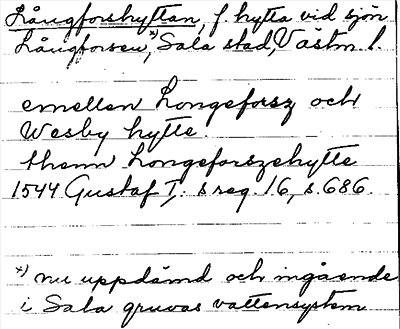 Långforshyttan, f. hytta vid sjön
Långforsen,*) Sala stad, Västm l.
emellen Longeforsz och
Wesby hytte.
thenn Longeforszehytte
1544 Gustaf I:s reg. 16, s. 686.
*) nu uppdämd och ingående
i Sala gruvas vattensystem